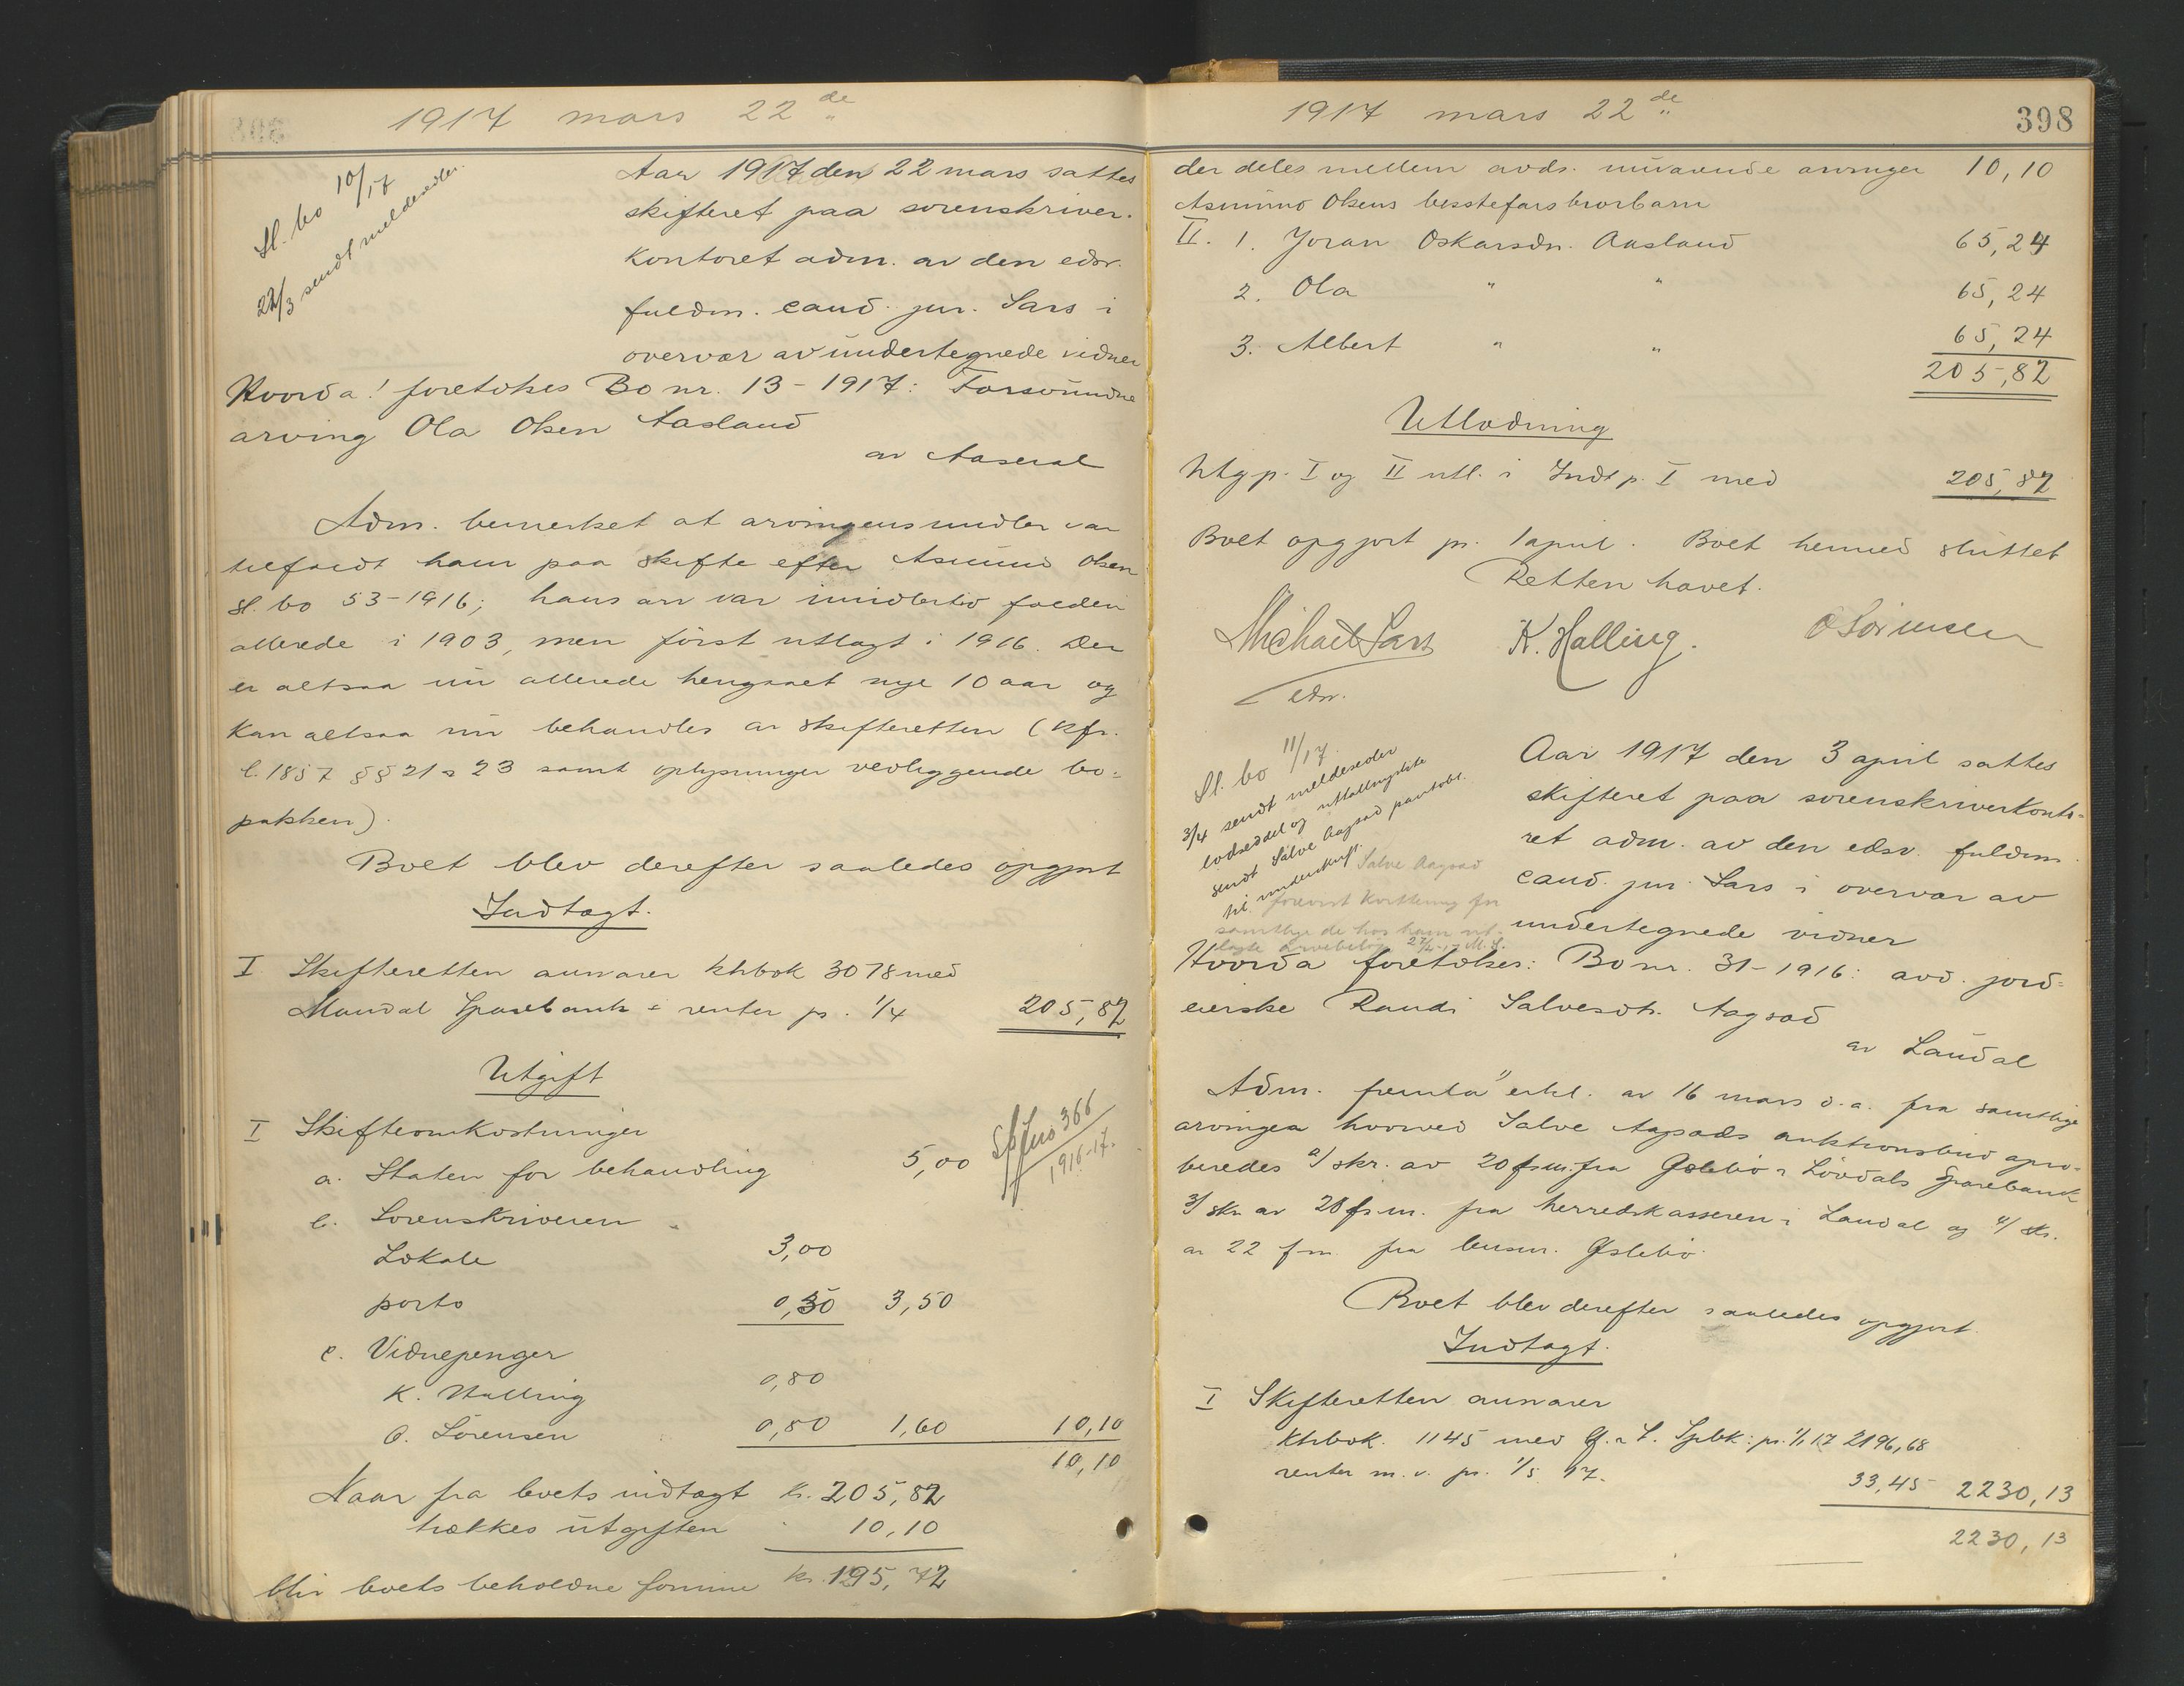 1917 mars 22de
Sl. bo 10/17
22/3 sendt meldesedler.
Aar 1917 den 22 mars sattes
skifteret paa sorenskriver-
kontoret adm. av den edsv.
fuldm. cand. jur. Sars i
overvær av undertegnede vidner
Hvorda! foretokes Bo nr. 13-1917: Forsvundne
arving Ola Olsen Aasland
av Aaseral
Adm. bemerket at arvingens midler var
tilfaldt ham paa skifte efter Asmund Olsen
sl. bo 53-1916; hans arv var imidlertid falden
allerede i 1903, men först utlagt i 1916. Der
er altsaa nu allerede hengaaet mye 10 aar og
kan altsaa nu behandles av skifteretten (kfr.
l. 1857 §§ 21 o 23 samt oplysninger vedliggende bo-
pakken).
Boet blev derefter saaledes opgjort
Indtægt.
I Skifteretten anvarer ktrbok 3078 med
Mandal Sparebank + renter pr. 1/4 205,82
Utgift
I Skifteomkostninger
a. Staten for behandling 5,00
Sp. Jno 366
1916-17.
b. Sorenskriveren
Lokale 3,00
porto 0,50 3,50
c. Vidnepenger
K. Halling 0,80
O. Sörensen 0,80 1,60 10,10
10,10
Naar fra boets indtægt kr. 205,82
trækkes utgiften " 10,10
blir boets beholdne formue kr. 195,72
1917 mars 22de
398
der deles mellem avds. nuværende arvinger 10,10
Asmund Olsens besstefarsbrorbarn
II. 1. Joran Oskarsdn. Aasland 65,24
2. Ola " " 65,24
3. Albert " " 65,24
205,82
Utlodning
Utg p. I og II utl. i Indt p. I med 205,82
Boet opgjort pr. 1 april. Boet hermed sluttet
Retten hævet.
Michael Sars K. Halling. O Sörensen
edsv.
Sl. bo 11/17
3/4 sendt meldeseder
lodseddel og uttallingsliste
sendt Salve Aagsad pantobl.
til underskrift.
Salve Aagsad
forevist kvittering for
samtlige de hos ham ut-
lagte arvebeløp 27/4-17 M.S.
Aar 1917 den 3 april sattes
skifteret paa sorenskriverkonto-
ret adm. av den edsv. fuldm.
cand. jur. Sars i overvær av
undertegnede vidner
Hvorda foretokes: Bo nr. 31-1916: avd. jord-
eierske Randi Salvesdtr. Aagsad
av Laudal
Adm. fremla 1/ erkl. av 16 mars d.a. fra samtlige
arvingea hvorved Salve Aagsads auktionsbud apro-
beredes 2/ skr. av 20 f.m. fra Öslebö o Lövdals Sparebank
3/ skr av 20 f.m. fra herredskasseren i Laudal og 4/ skr.
av 22 f.m. fra lensm. Öslebö.
Boet blev derefter saaledes opgjort.
Indtægt.
I Skifteretten anvarer
Ktrbok. 1145 med Ö. o L. Spbk: pr. 1/1 17 2196,68
renter m.v. pr. 1/5 17. 33,45 2230,13
2230,13